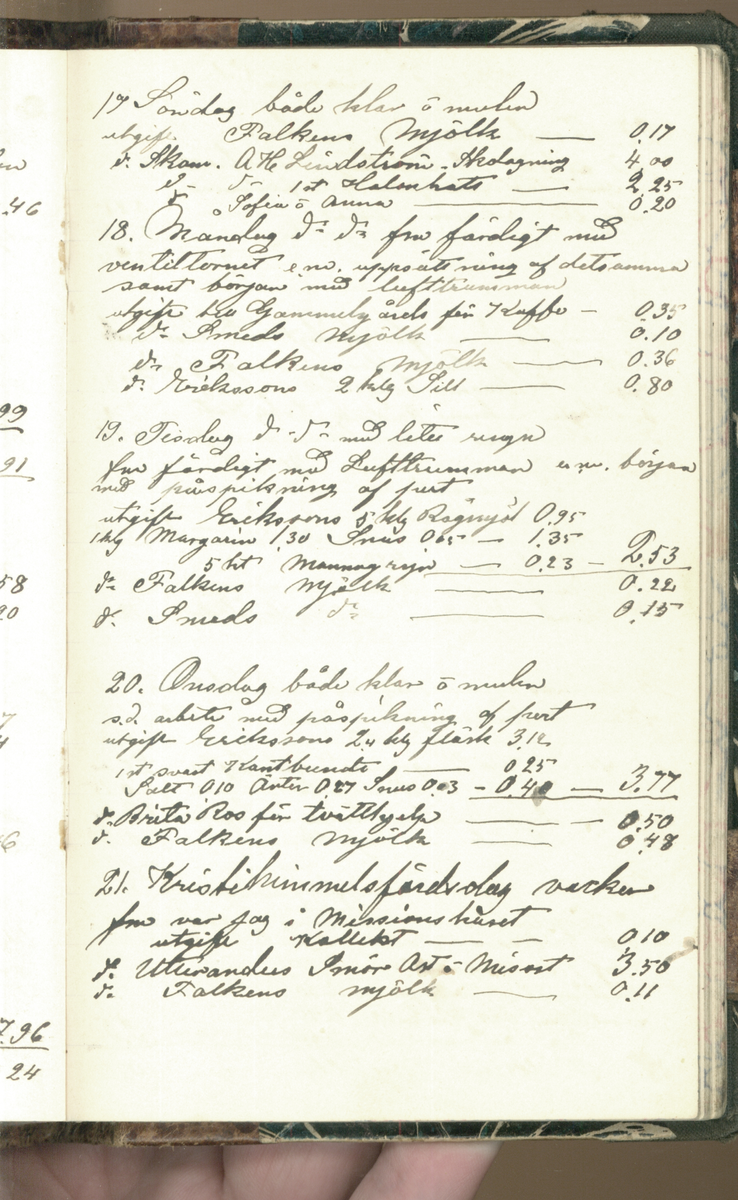 46
99
91
58
20
7.96
24
17 Söndag både klar ö mulen
utgift Falkens Mjölk — 0.17
d. Skom. A H Lindström 4.00
d- d- 1st Halmhatt — 2.25
d- Sofia ö Anna — 0.20
18. Måndag d- d- fm färdigt med
ventiltornet em. uppsättning af detsamma
samt början med lufttrumman
utgift Gammelgårds för Kaffe — 0.35
d- Smeds Mjölk — 0.10
d- Falkens Mjölk — 0.36
d- Erikssons 2 klg Sill — 0.80
19. Tisdag d- d- med litet regn
fm färdigt med Lufttrumman em. början
med påspikning af pert
utgift Erikssons 5 klg Rågmjöl 0.95
1 klg Margarin 1.30 Snus 0.05 — 1.35
5 ht Mannagryn — 0.23 — 2.53
d- Falkens Mjölk — 0.22
d- Smeds d- — 0.15
20. Onsdag både klar ö mulen
s.d. arbete med påspikning af pert
utgift Erikssons 2,4 klg fläsk 3.12
1st svart Kantband — 0.25
Salt 0.10 Ärter 0.27 Snus 0.03 — 0.40 — 3.77
d. Brita Ros för tvätthjelp — 0.50
d. Falkens Mjölk — 0.48
21. Kristihimmelsfärdsdag vacker
fm var jag i Missionshuset
utgift Kollekt — 0.10
d- Utteranders Smör Ost ö Misost 3.50
d- Falkens Mjölk — 0.11